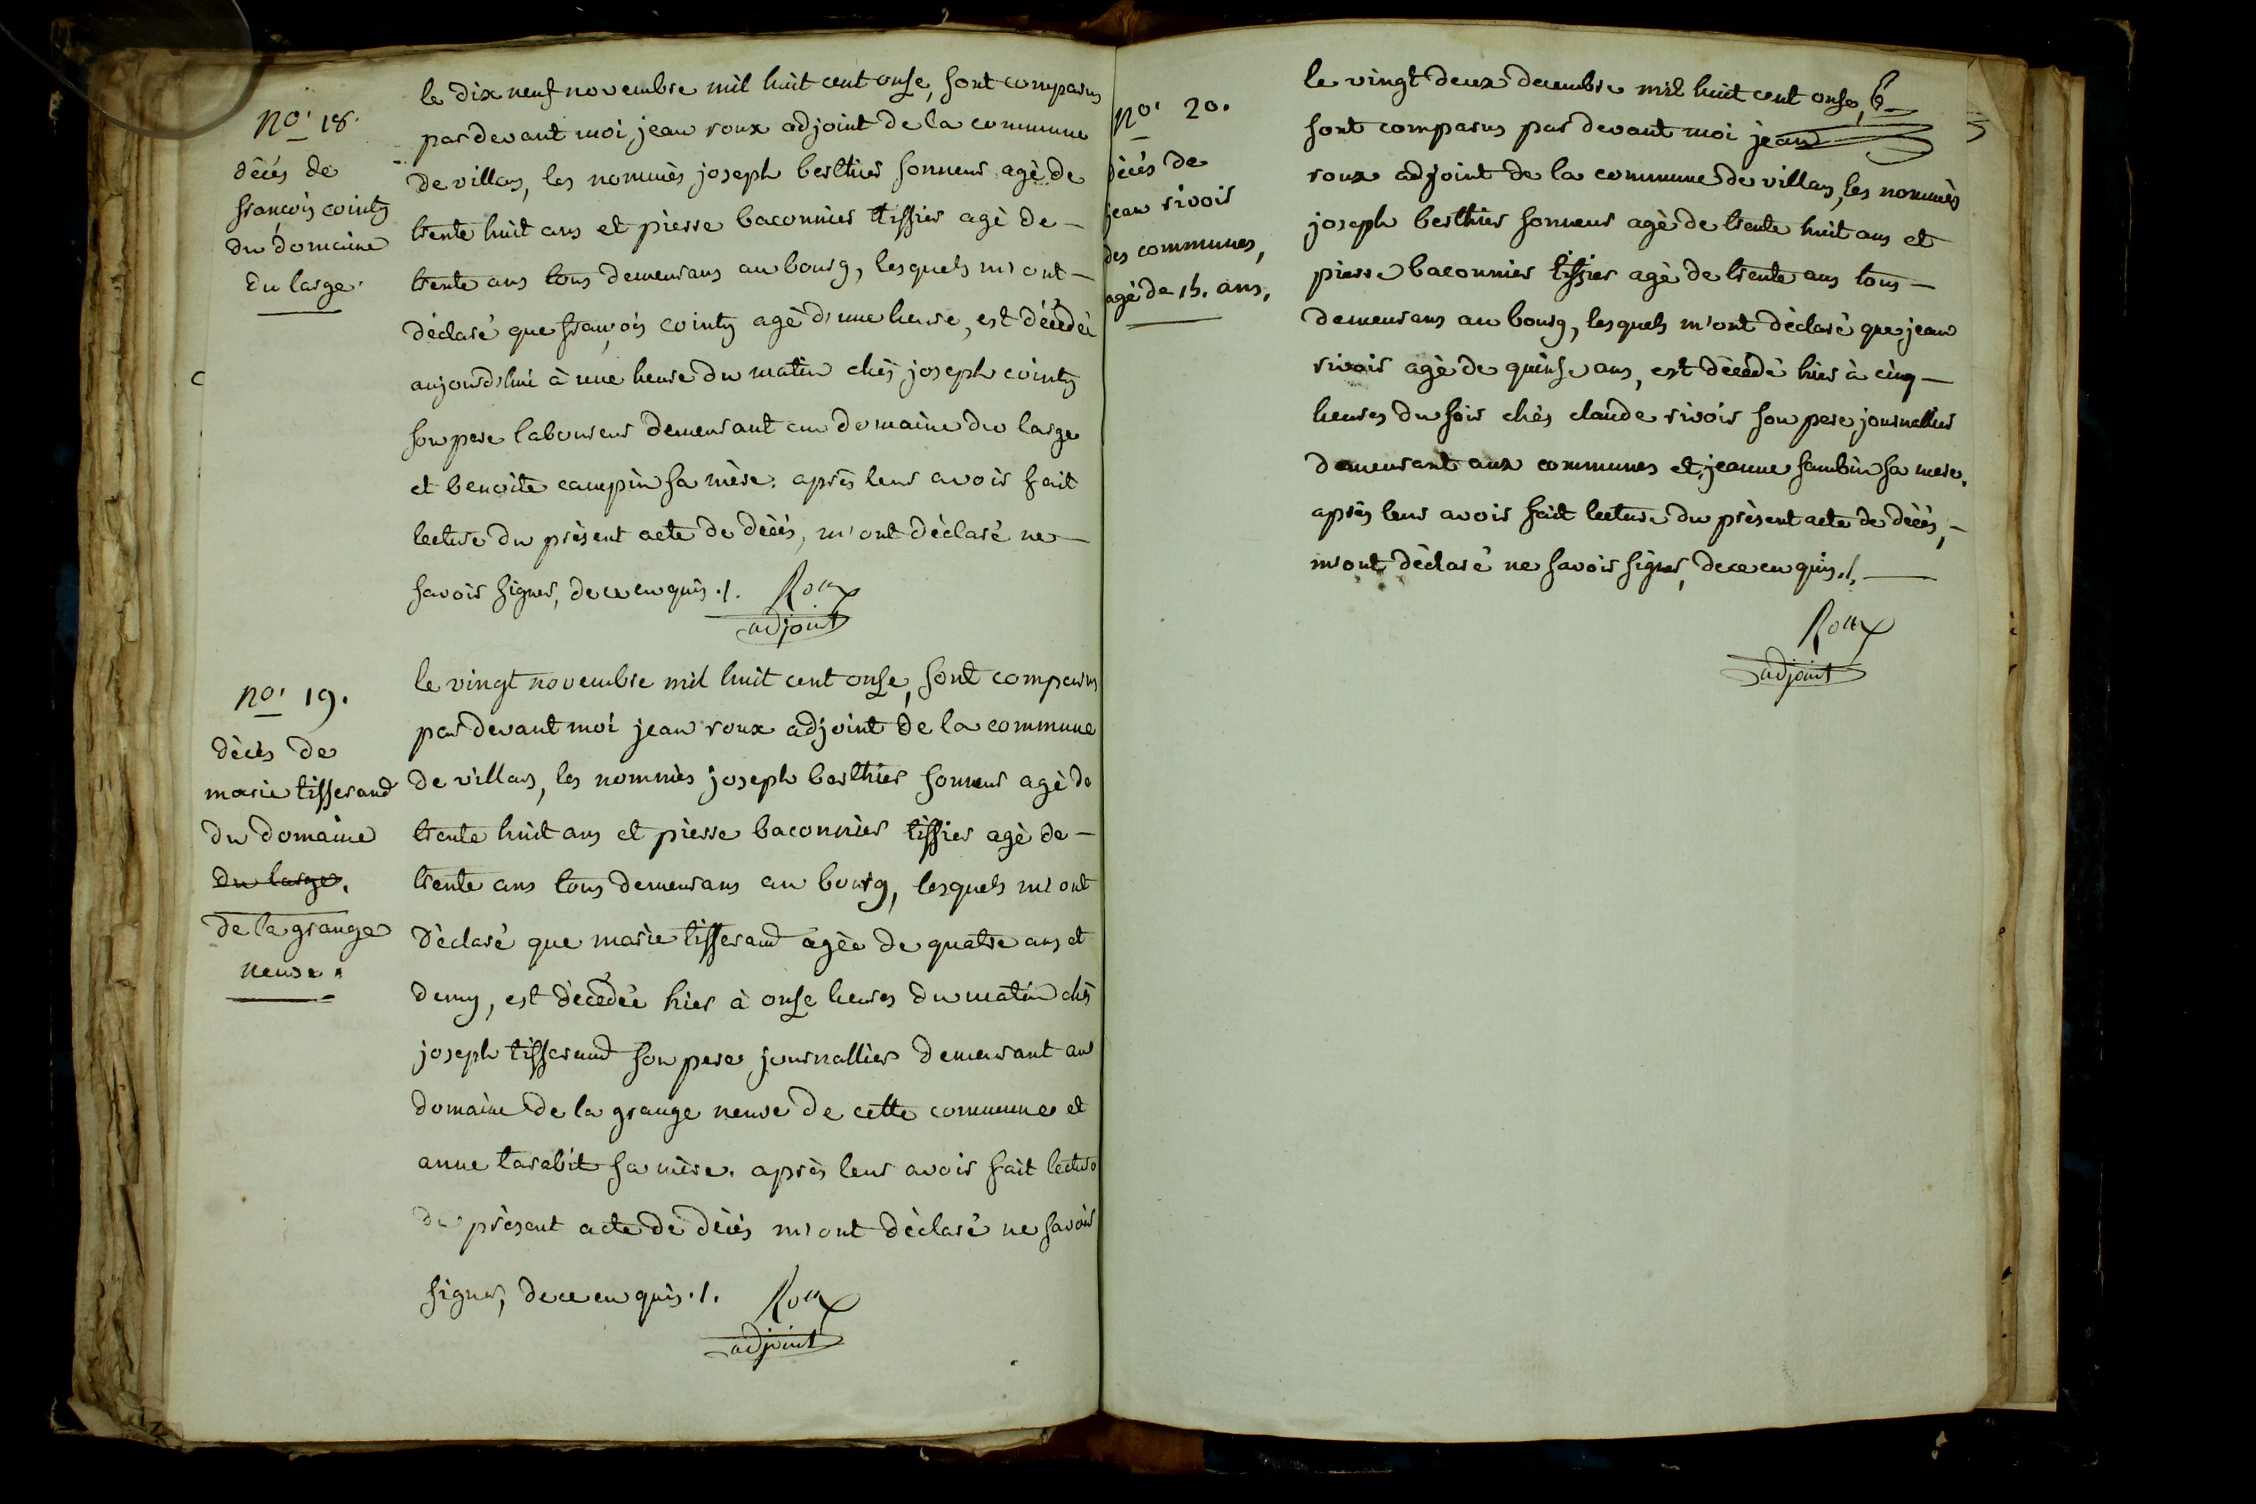 no. 18.
décés de
françois cointy
du domaine
du large.
le dix neuf novembre mil huit cent onse, sont comparus
par devant moi jean roux adjoint de la commune
de villars, les nommès joseph berthier sonneur agè de
trente huit ans et pierre baconnier tissier agè de —
trente ans tous demeurans au bourg, lesquels m'ont —
déclaré que françois cointy agè d'une heure, est décèdé
aujourd'hui à une heure du matin chés joseph cointy
son pere laboureur demeurant au domaine du large
et benoite campin sa mère. après leur avoir fait
lecture du prèsent acte de décés, m'ont dèclaré ne —
savoir signer, de ce enquis ./. Roux
adjoint
no. 19.
dècès de
marie tisserand
du domaine
du large.
de la grange
neuve.
le vingt novembre mil huit cent onse, sont comparus
par devant moi jean roux adjoint de la commune
de villars, les nommès joseph berthier sonneur agè de
trente huit ans et pierre baconnier tissier agè de —
trente ans tous demeurans au bourg, lesquels m'ont
dèclaré que marie tisserand agèe de quatre ans et
demy, est dècèdèe hier à onse heures du matin chés
joseph tisserand son pere journallier demeurant au
domaine de la grange neuve de cette commune et
anne tarabit sa mère. après leur avoir fait lecture
du prèsent acte de dècés m'ont dèclaré ne savoir
signer, de ce enquis ./. Roux
adjoint
no. 20.
dècés de
jean rivoir
des communes,
agè de 15. ans.
le vingt deux decembre mil huit cent onse,
sont comparus par devant moi jean
roux adjoint de la commune de villars, les nommès
joseph berthier sonneur agè de trente huit ans et
pierre baconnier tissier agè de trente ans tous —
demeurans au bourg, lesquels m'ont dèclaré que jean
rivoir agè de quinse ans, est dècèdè hier à cinq —
heures du soir chés claude rivoir son pere journallier
demeurant aux communes et jeanne sambin sa mere.
après leur avoir fait lecture du prèsent acte de décès, —
m'ont dèclaré ne savoir signer, de ce enquis ./. —
Roux
adjoint